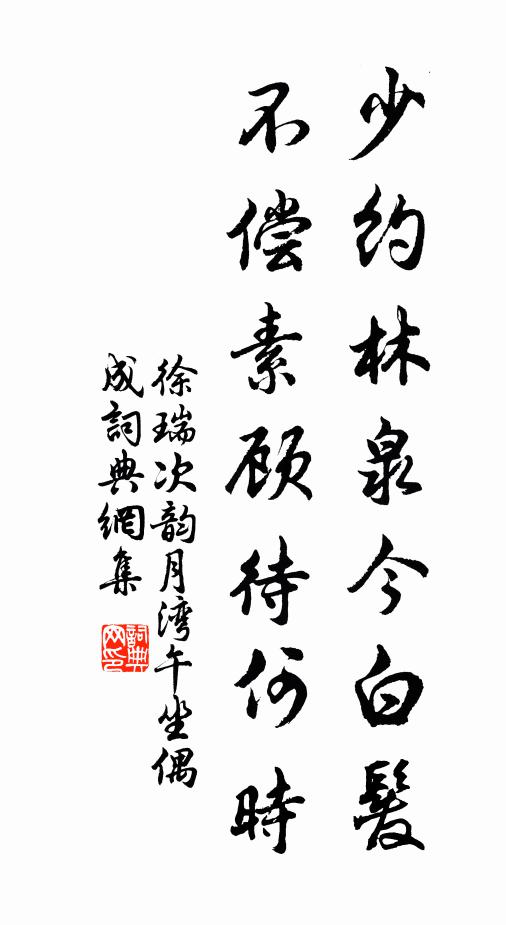 少约林泉今白髮
不偿素顾待何時
徐瑞次韵月湾午坐偶
成詞典網集
詞典
网印